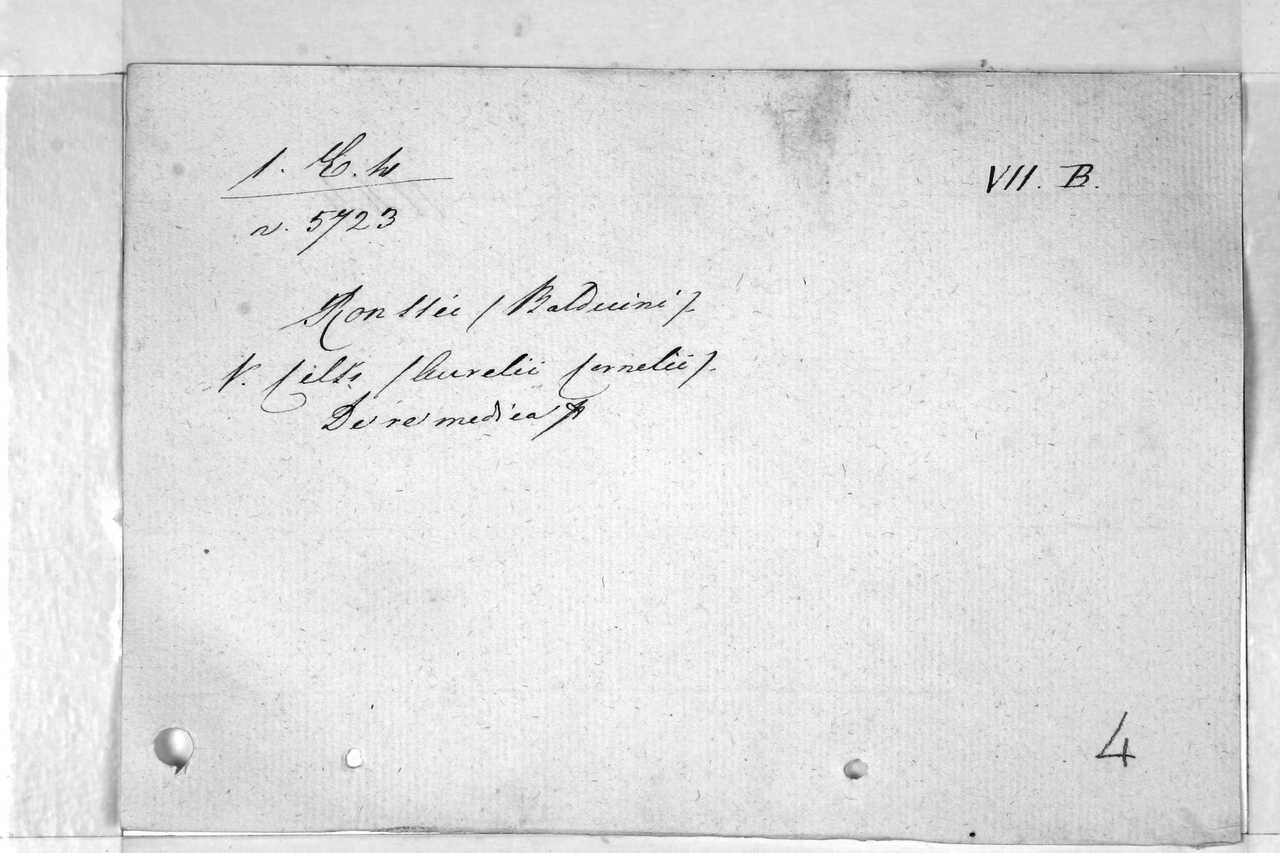 1. E. h
VII. B.
n. 5723
Ronssei (Balduini).
V. Celsi (Aurelii Cornelii).
De re medica
4